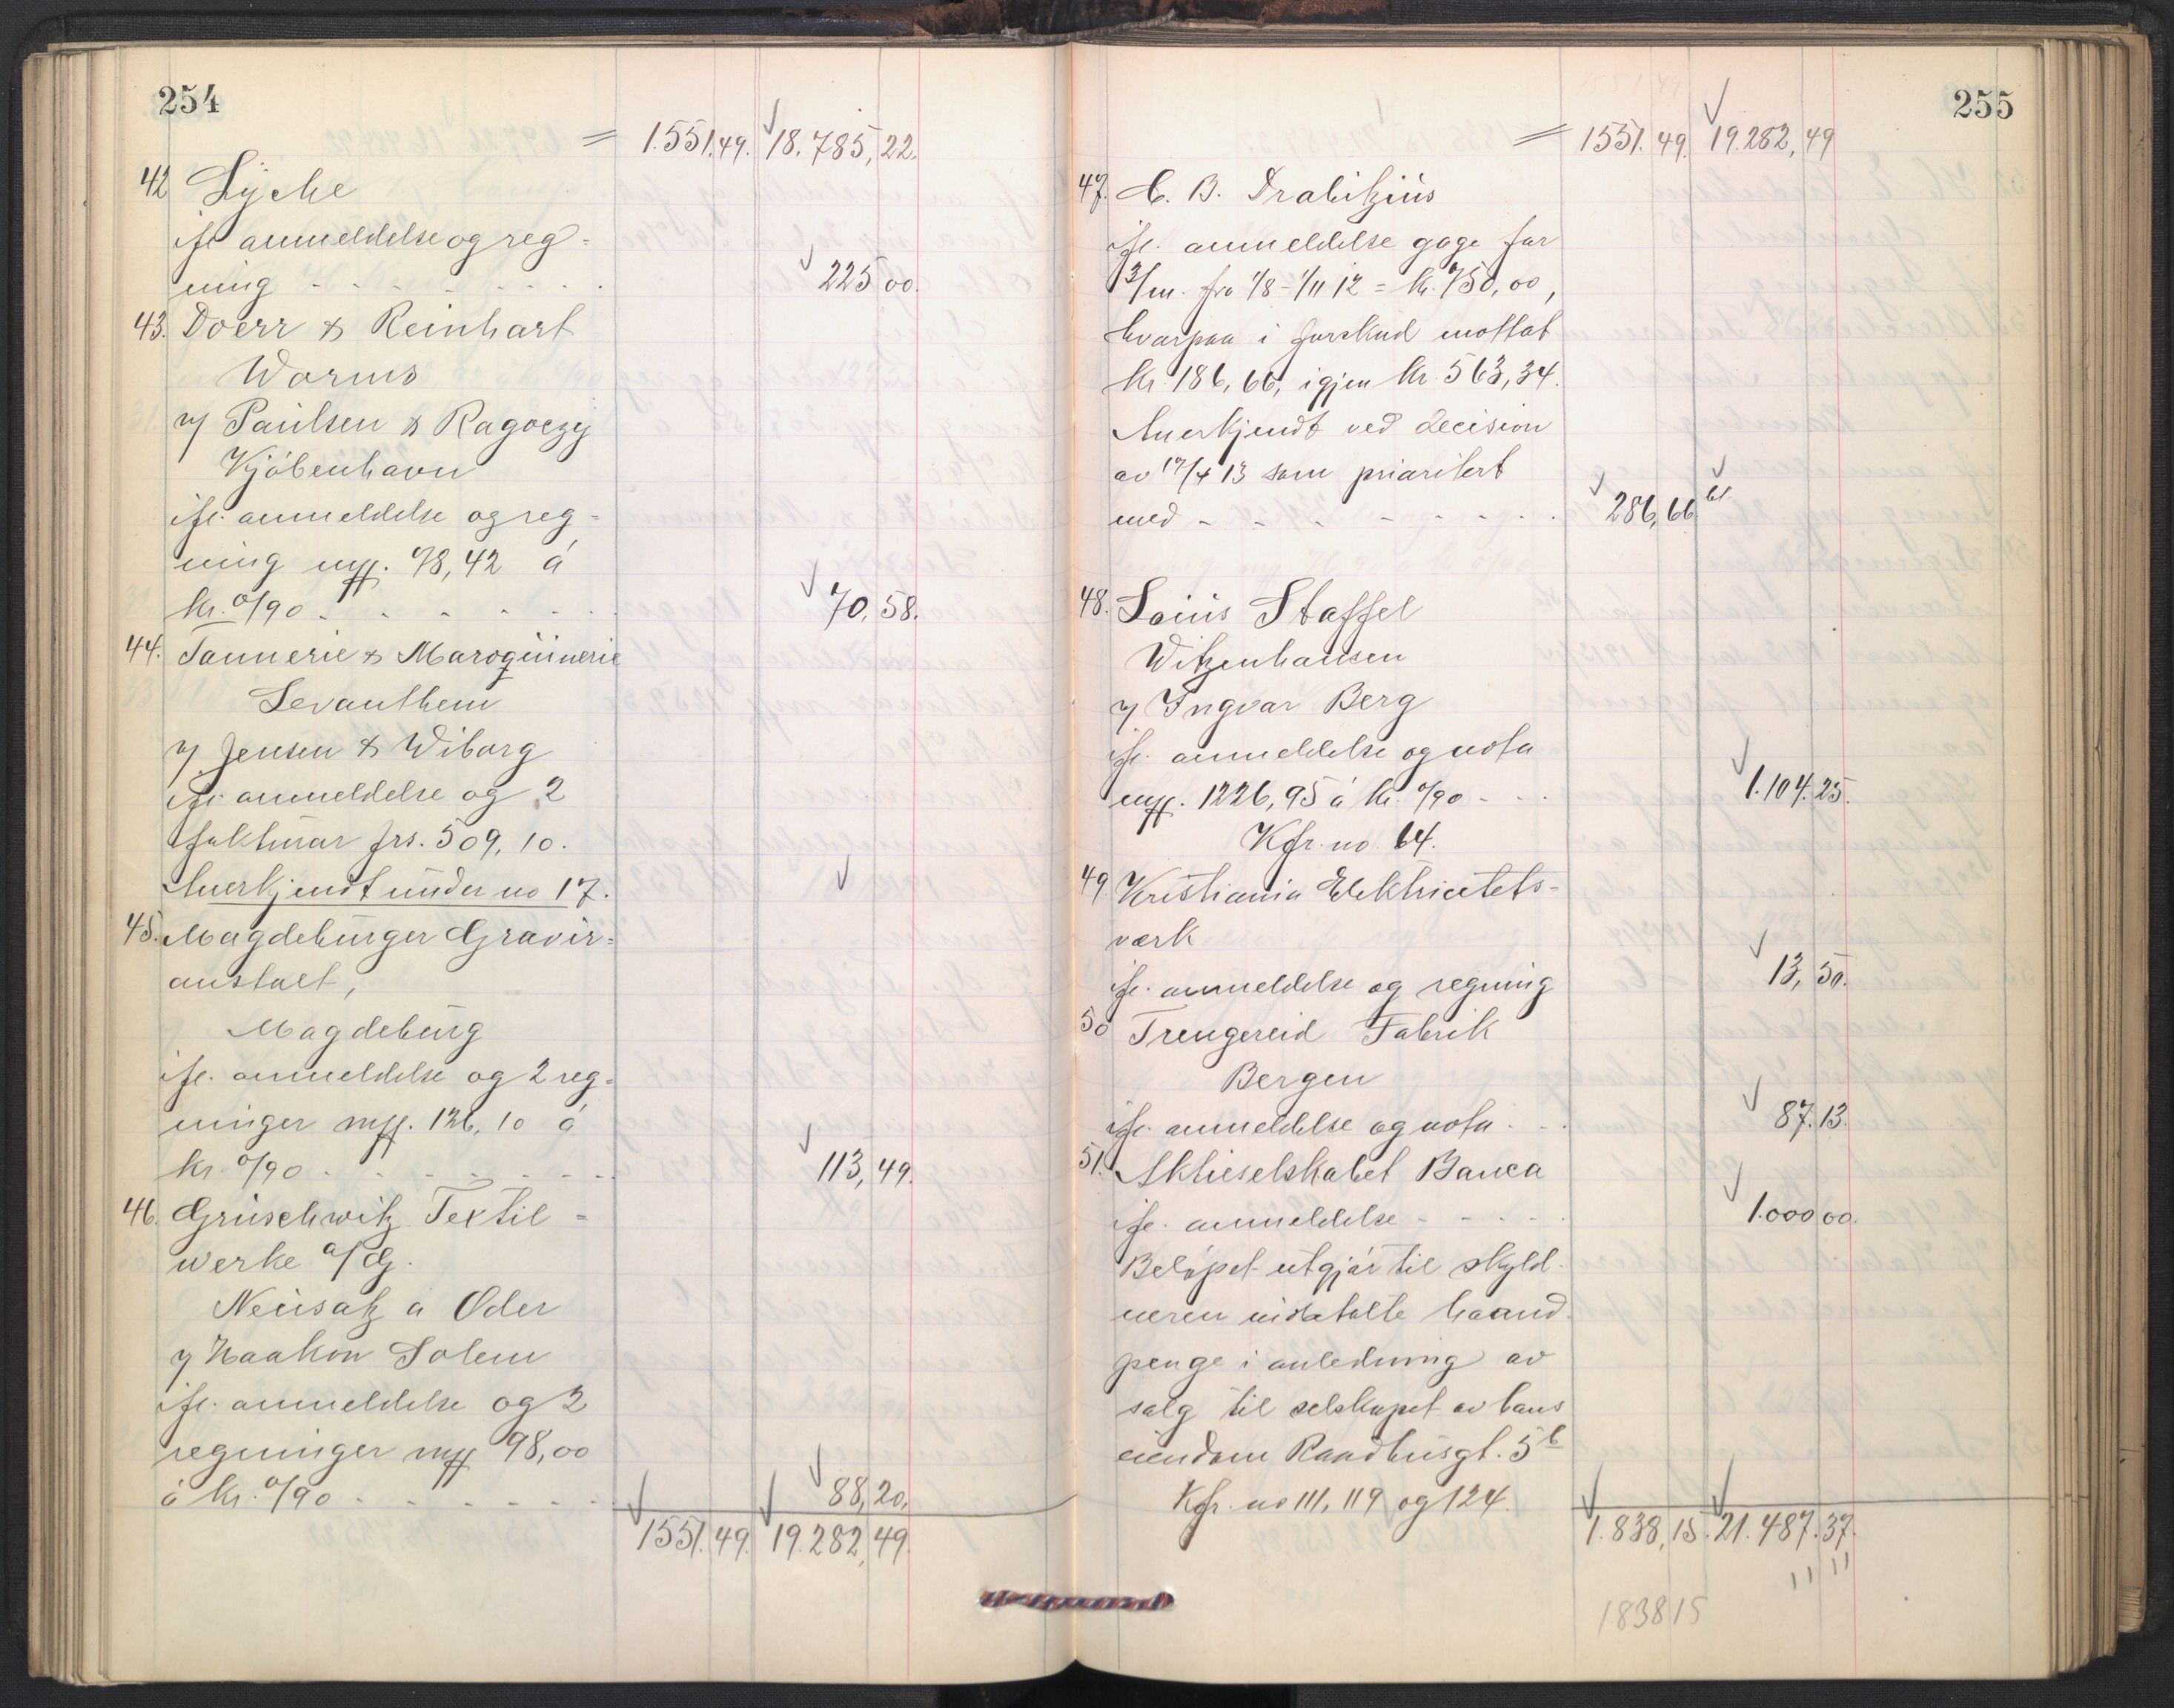 254
= 1.551.49. 18.785,22.
42 Lyche
ifl. anmeldelse og reg-
ning - - - - - - - 225 00.
43. Doerr & Reinhart
Worms
v/ Paulsen & Ragoczy
Kjøbenhavn
ifl. anmeldelse og reg-
ning mff. 78,42 á
kr. 0/90 - - - - - - 70,58.
44. Tannerie & Maroquinnerie
Levanthem
v/ Jensen & Wiborg
ifl. anmeldelse og 2
fakturar frs. 509,10.
Anerkjendt under no 17.
45. Magdeburger Gravir-
anstalt,
Magdeburg
ifl. anmeldelse og 2 reg-
ninger mff. 126,10 á
kr. 0/90 - - - - - - - 113,49.
46. Gruschwitz Textil-
werke a/G.
Neusatz a Oder
v/ Haakon Solem
ifl. anmeldelse og 2
regninger mff 98,00
á kr. 0/90 - - - - - - 88,20.
1551.49. 19.282,49.
255
= 1551.49. 19.282,49
47. C. B. Drabitzius
ifl. anmeldelse gage for
3/m. fra 1/8-1/11 12 = kr. 750,00,
hvorpaa i forskud mottat
kr. 186,66, igjen kr. 563,34.
Anerkjendt ved decision
av 17/4 13 som prioritert
med - - - - - - - 286,66
48. Louis Staffel
Witzenhausen
v/ Ingvar Berg
ifl. anmeldelse og nota
mff. 1226,95 á kr. 0/90 - - - 1.104.25.
Kfr. no. 64.
49 Kristiania Elektricitets-
værk
ifl. anmeldelse og regning 13,50.
50 Trengereid Fabrik
Bergen
ifl. anmeldelse og nota - - - 87.13.
51. Aktieselskabet Banca
ifl. anmeldelse - - - - - 1.000 00.
Beløpet utgjør til skyld-
neren indbetalte haand-
penge i anledning av
salg til selskapet av hans
eiendom Raadhusgt. 5b
Kfr. no 111, 119 og 124.
1.838,15. 21.487.37.
183815